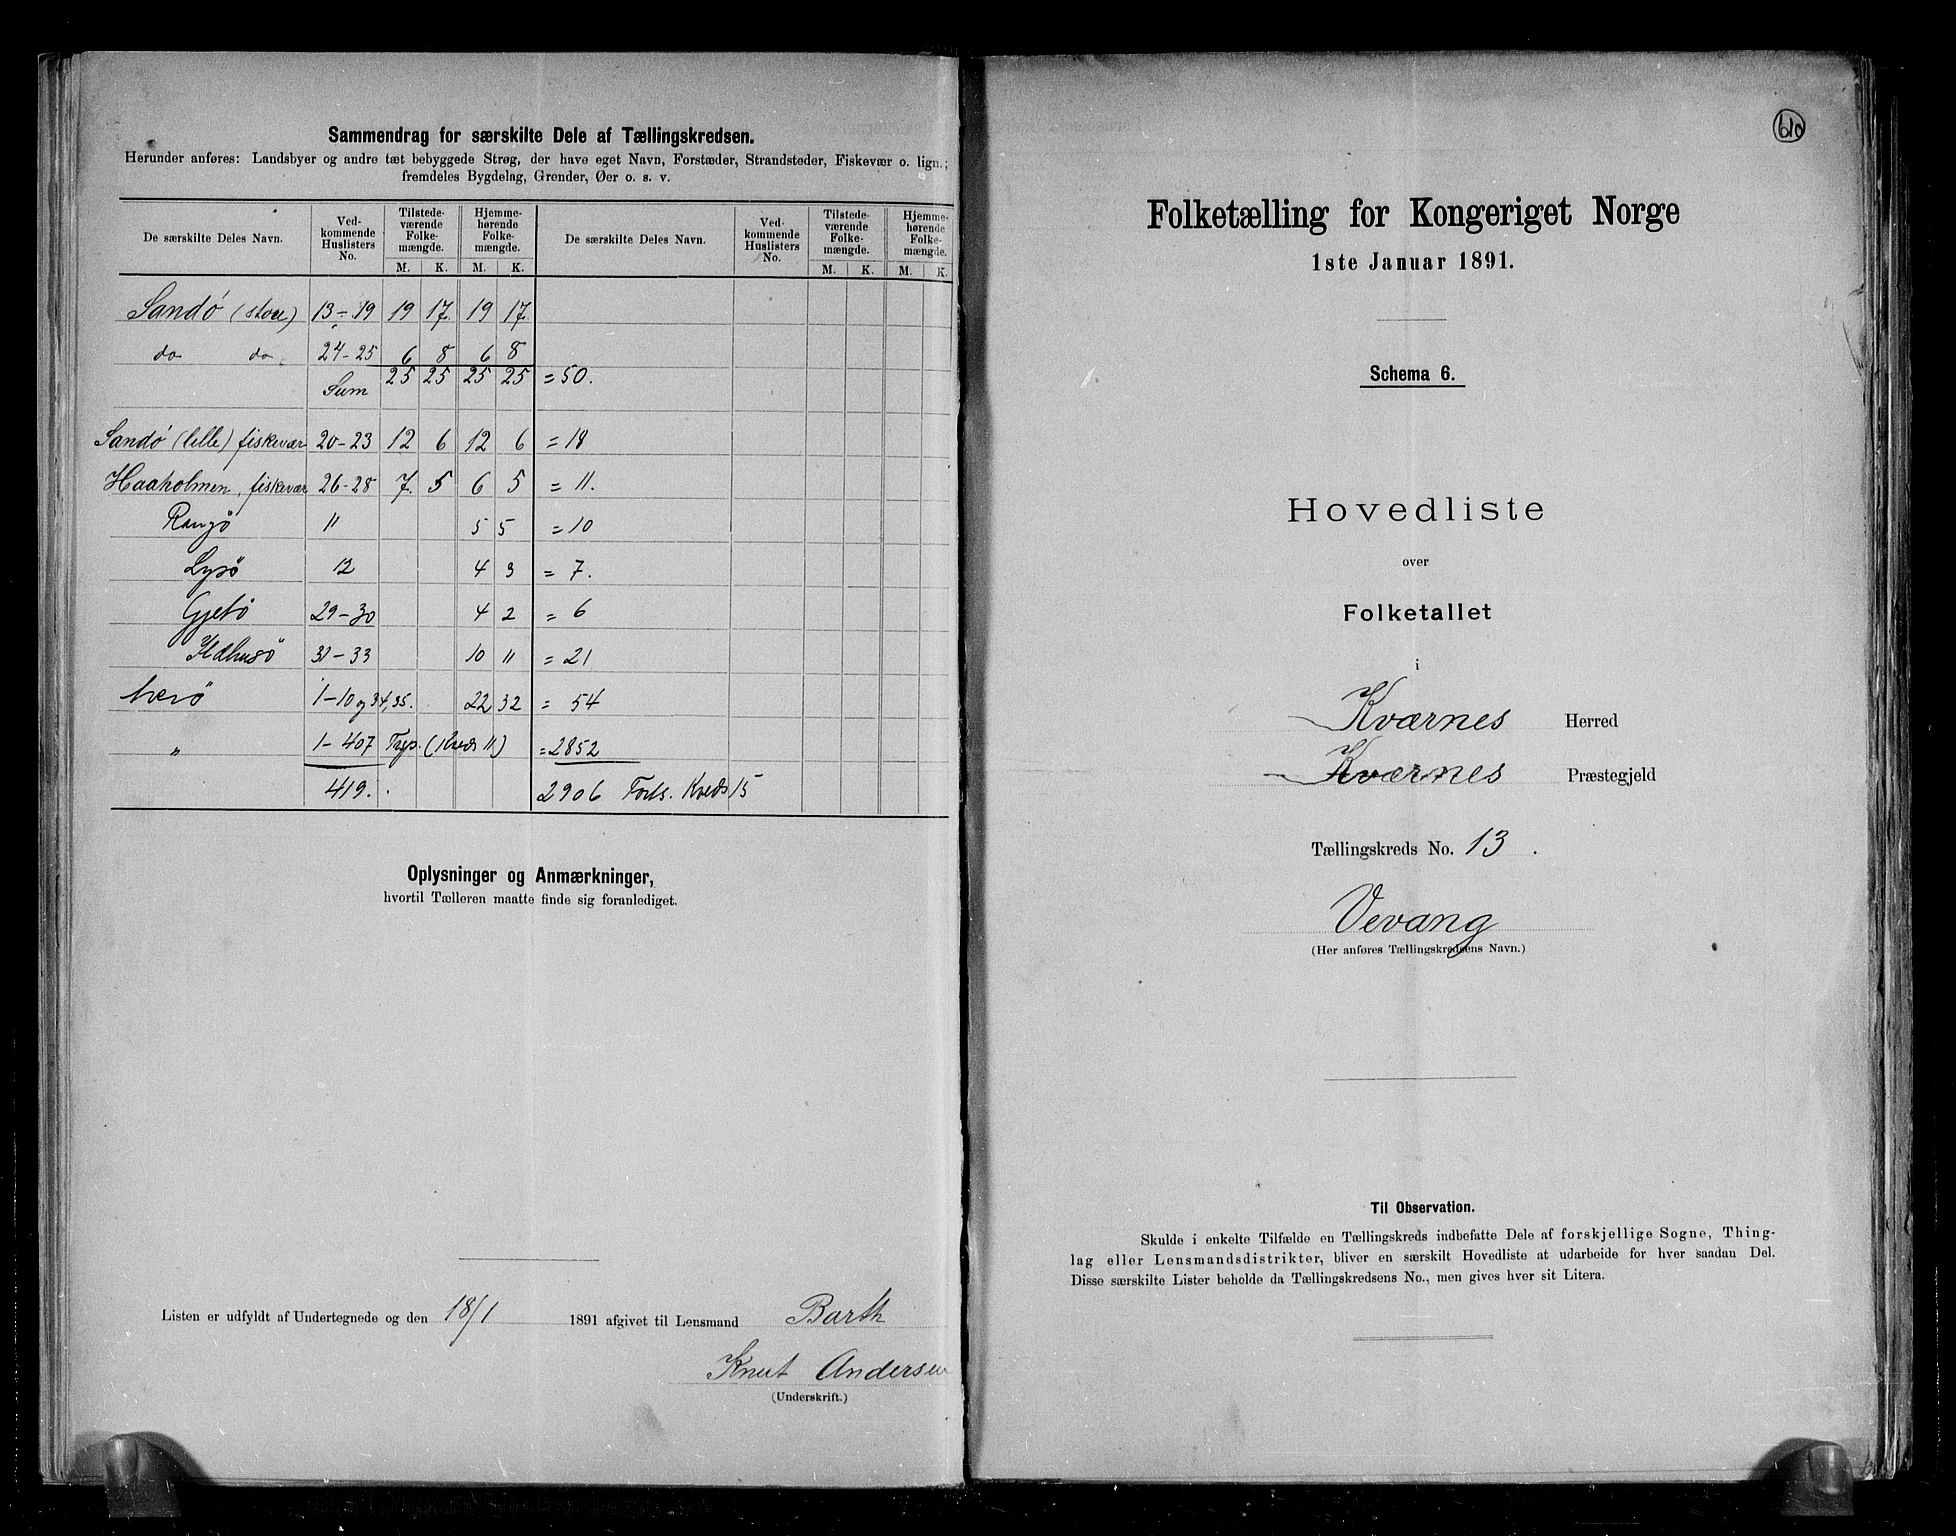 Sammendrag for særskilte Dele af Tællingskredsen.
Herunder anføres: Landsbyer og andre tæt bebyggede Strøg, der have eget Navn, Forstæder, Strandsteder, Fiskevær o. lign.;
fremdeles Bygdelag, Grender, Øer o. s. v.
De særskilte Deles Navn. Ved-kommende Huslisters No. Tilstede-værende Folke-mængde. Hjemme-hørende Folke-mængde. De særskilte Deles Navn. Ved-kommende Huslisters No. Tilstede-værende Folke-mængde. Hjemme-hørende Folke-mængde.
M. K. M. K. M. K. M. K.
Sandö (store) 13-19 19 17. 19 17.
do do 24-25 6 8 6 8
Sum 25 25 25 25 = 50.
Sandö (lille) fiskevær 20-23 12 6 12 6 = 18
Haaholmen, fiskevær 26-28 7. 5 6 5 = 11.
Rangö 11 5 5 = 10
Lysö 12 4 3 = 7.
Gjetö 29-30 4 2 = 6
Ildhusö 31-33 10 11 = 21
Averö 1-10 og 34,35. 22 32 = 54
" 1-407 (Kreds 11) = 2852
419. 2906 Forts. Kreds 15
Oplysninger og Anmærkninger,
hvortil Tælleren maatte finde sig foranlediget.
Listen er udfyldt af Undertegnede og den 18/1 1891 afgivet til Lensmand Barth
Knut Andersen
(Underskrift.)
610
Folketælling for Kongeriget Norge
1ste Januar 1891.
Schema 6.
Hovedliste
over
Folketallet
i
Kværnes Herred
Kværnes Præstegjeld
Tællingskreds No. 13.
Vevang
(Her anføres Tællingskredsens Navn.)
Til Observation.
Skulde i enkelte Tilfælde en Tællingskreds indbefatte Dele af forskjellige Sogne, Thing-
lag eller Lensmandsdistrikter, bliver en særskilt Hovedliste at udarbeide for hver saadan Del.
Disse særskilte Lister beholde da Tællingskredsens No., men gives hver sit Litera.